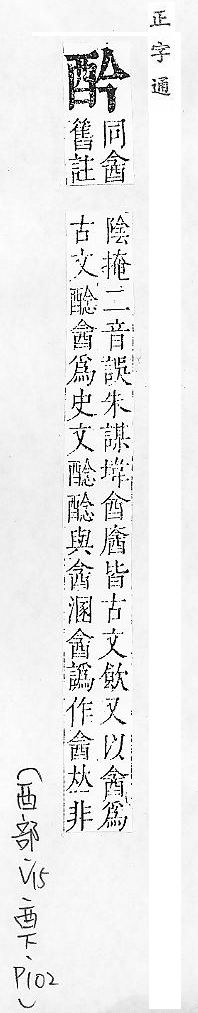 正字通
同酓
舊註
陰掩二音誤朱謀㙔酓皆古文飲又以酓爲
古文酓爲史文與酓溷酓譌作酓𠀤非
(酉部、V15、酉下、P102)